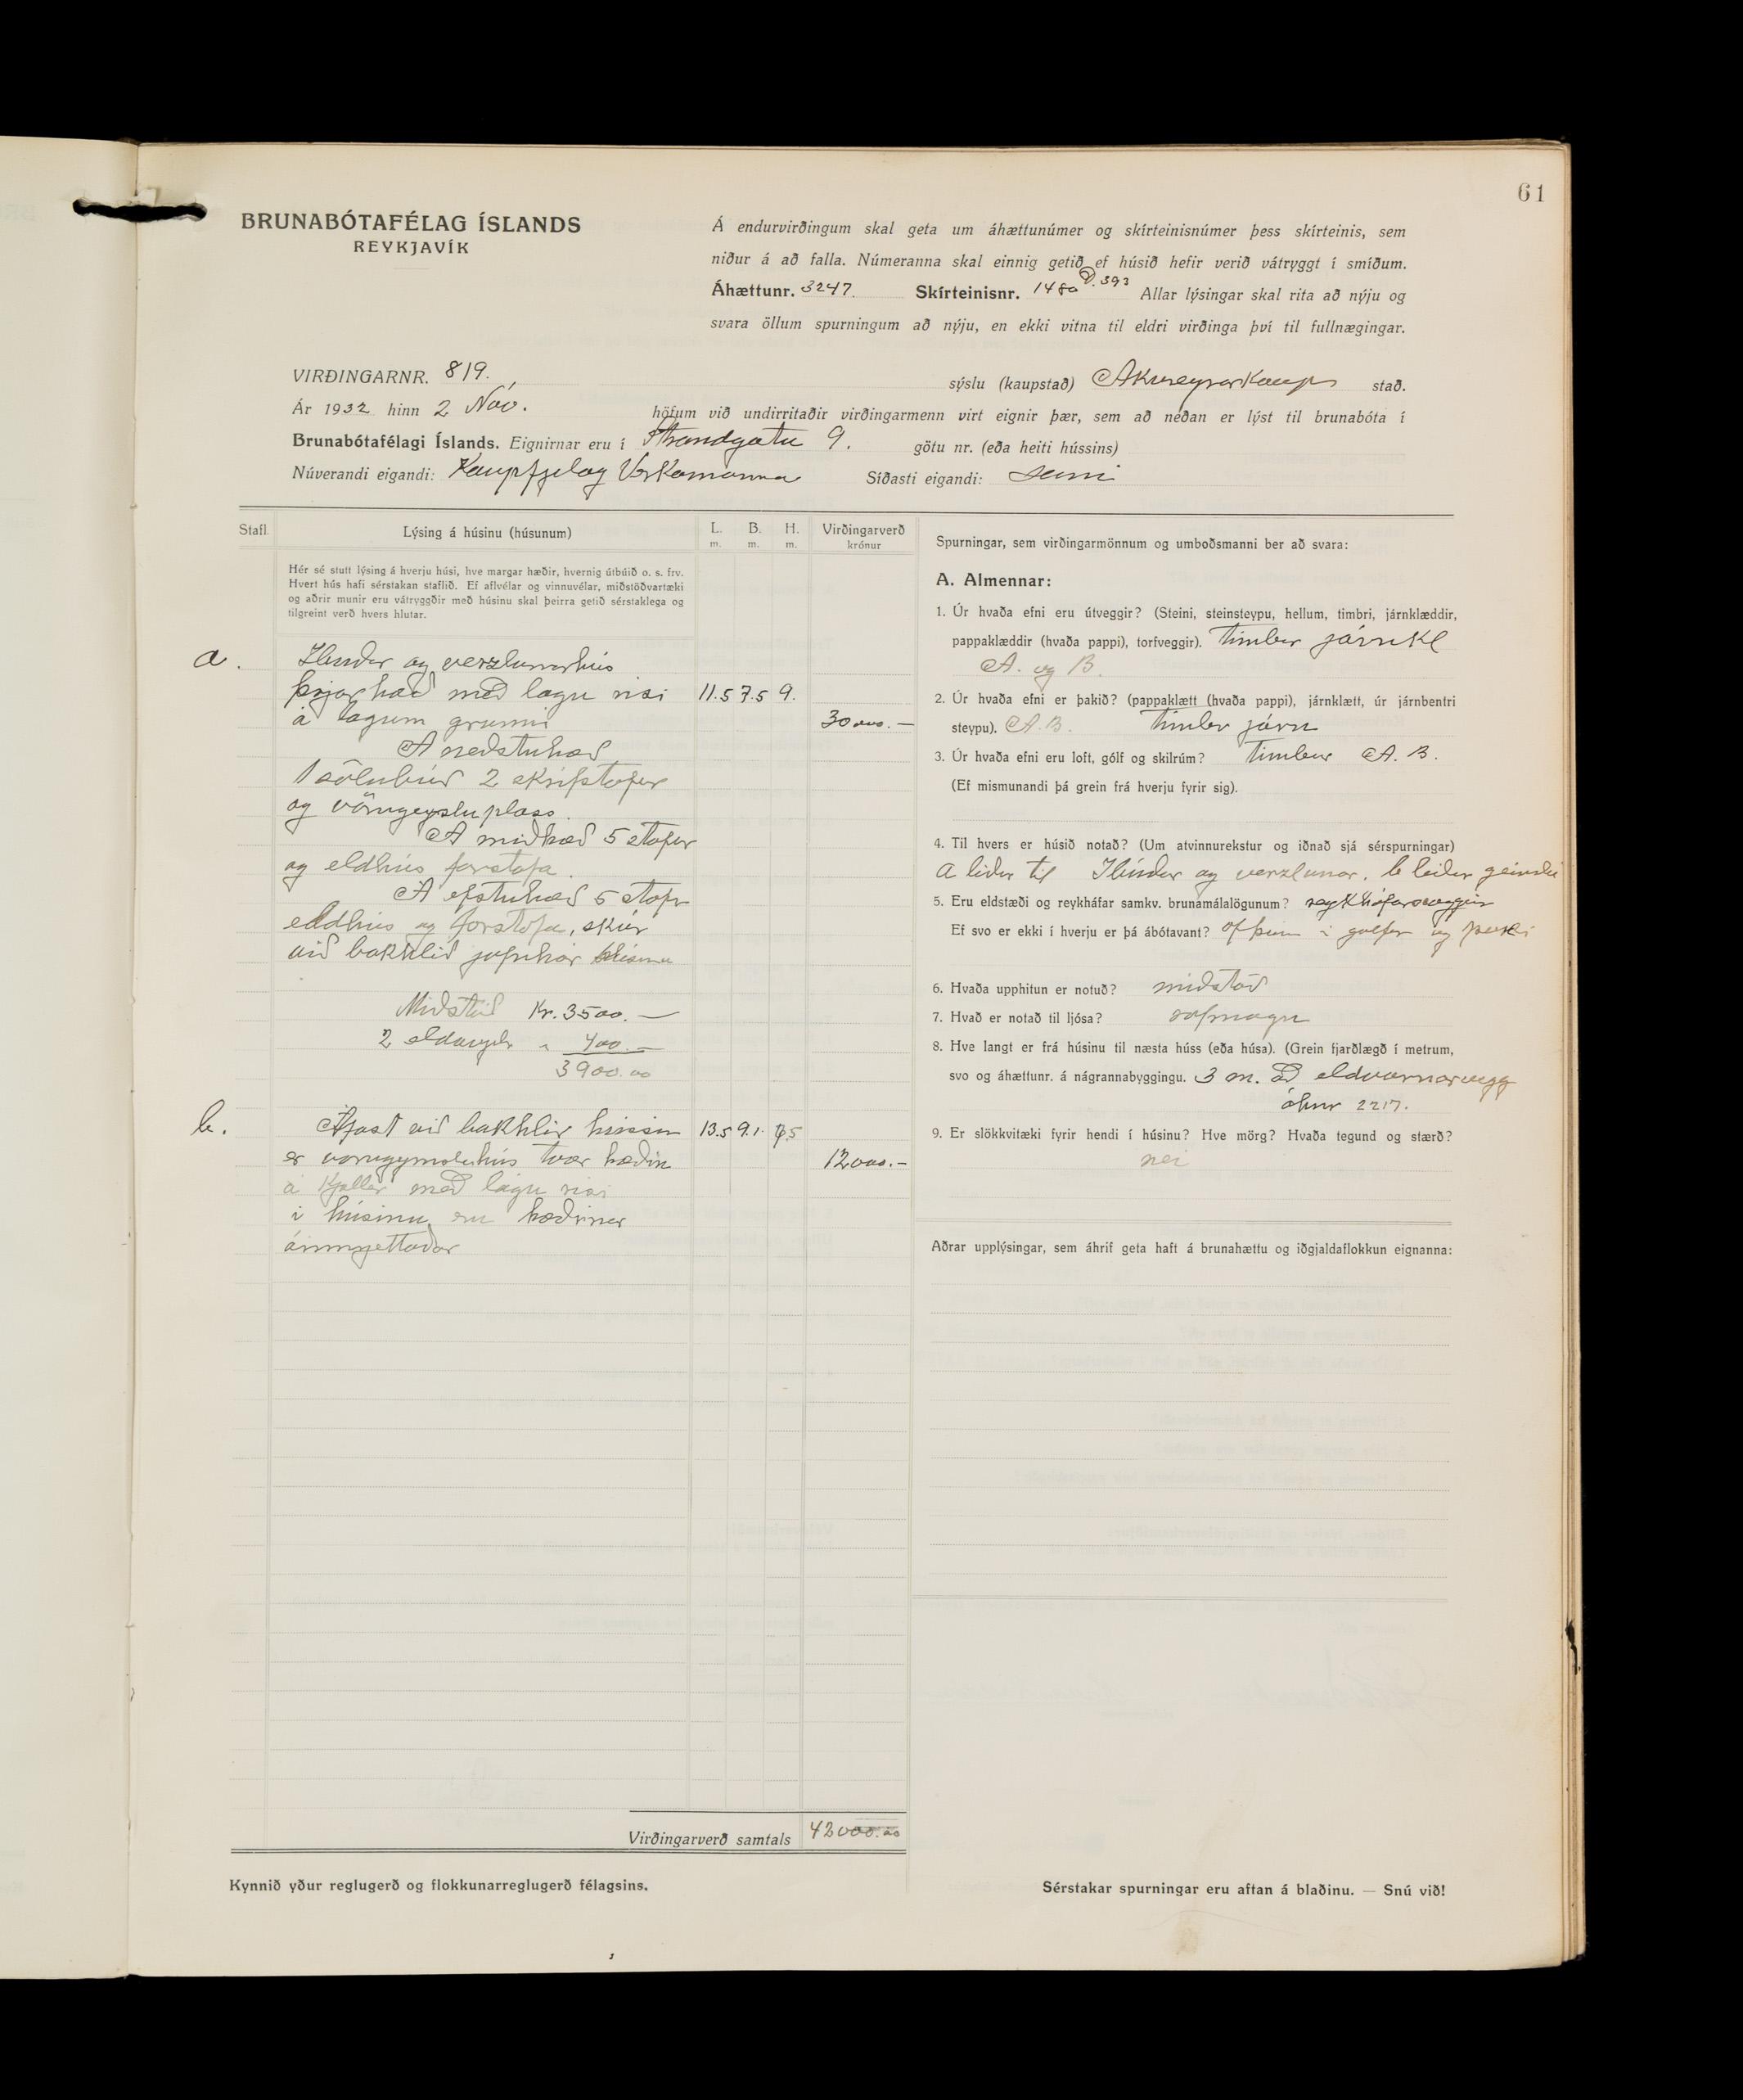 61
BRUNABÓTAFÉLAG ÍSLANDS
REYKJAVÍK
Á endurvirðingum skal geta um áhættunúmer og skírteinisnúmer þess skírteinis, sem
niður á að falla. Númeranna skal einnig getið ef húsið hefir verið vátryggt í smíðum.
Áhættunr. 3247. Skírteinisnr. 1480 D. 393 Allar lýsingar skal rita að nýju og
svara öllum spurningum að nýju, en ekki vitna til eldri virðinga því til fullnægingar.
VIRÐINGARNR. 819. sýslu (kaupstað) Akureyrarkaup stað.
Ár 1932 hinn 2 Nóv. höfum við undirritaðir virðingarmenn virt eignir þær, sem að neðan er lýst til brunabóta í
Brunabótafélagi Íslands. Eignirnar eru í Strandgötu 9. götu nr. (eða heiti hússins)
Núverandi eigandi: Kaupfjelag Verkamanna Síðasti eigandi: sami
Stafl. Lýsing á húsinu (húsunum) L. m. B. m. H. m. Virðingarverð krónur
Hér sé stutt lýsing á hverju húsi, hve margar hæðir, hvernig útbúið o. s. frv.
Hvert hús hafi sérstakan staflið. Ef aflvélar og vinnuvélar, miðstöðvartæki
og aðrir munir eru vátryggðir með húsinu skal þeirra getið sérstaklega og
tilgreint verð hvers hlutar.
a. Íbúðar og verzlunarhús
þrjár hæð með lágu risi 11.5 7.5 9.
á lágum grunni 30000.-
Á neðstuhæð
1 sölubúð 2 skrifstofur
og vörugeysluplass.
Á miðhæð 5 stofur
og eldhús forstofa.
Á efstuhæð 5 stofur
eldhús og forstofa, skúr
við bakhlið jafnhár húsinu
Miðstöð Kr. 3500.-
2 eldavjelar " 400.-
3900.00
b. Áfast við bakhlið hússins 13.5 9.1. 7.5
er vörugymsluhús tvær hæðir 12000.-
á kjallar með lágu risi
í húsinu eru hæðirnar
óinnrjettaðar
Virðingarverð samtals 42000.00
Spurningar, sem virðingarmönnum og umboðsmanni ber að svara:
A. Almennar:
1. Úr hvaða efni eru útveggir? (Steini, steinsteypu, hellum, timbri, járnklæddir,
pappaklæddir (hvaða pappi), torfveggir). timbur járnkl
A. og B.
2. Úr hvaða efni er þakið? (pappaklætt (hvaða pappi), járnklætt, úr járnbentri
steypu). A. B. timbur járn
3. Úr hvaða efni eru loft, gólf og skilrúm? timbur A. B.
(Ef mismunandi þá grein frá hverju fyrir sig).
4. Til hvers er húsið notað? (Um atvinnurekstur og iðnað sjá sérspurningar)
A liður til Íbúðar og verzlunar. b liður
5. Eru eldstæði og reykháfar samkv. brunamálalögunum?
Ef svo er ekki í hverju er þá ábótavant? of þunn í gólfum og þaki
6. Hvaða upphitun er notuð? miðstöð
7. Hvað er notað til ljósa? rafmagn
8. Hve langt er frá húsinu til næsta húss (eða húsa). (Grein fjarðlægð í metrum,
svo og áhættunr. á nágrannabyggingu. 3 m. að eldvarnarvegg
áhnr 2217.
9. Er slökkvitæki fyrir hendi í húsinu? Hve mörg? Hvaða tegund og stærð?
nei
Aðrar upplýsingar, sem áhrif geta haft á brunahættu og iðgjaldaflokkun eignanna:
Kynnið yður reglugerð og flokkunarreglugerð félagsins.
Sérstakar spurningar eru aftan á blaðinu. — Snú við!